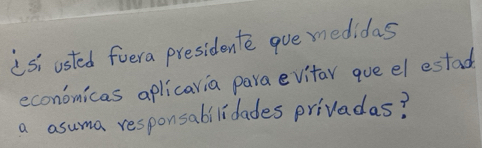 ¿sí usted fuera presidenté que medidas
económicas aplicaría para evitar que el estad
a asuma responsabilidades privadas?